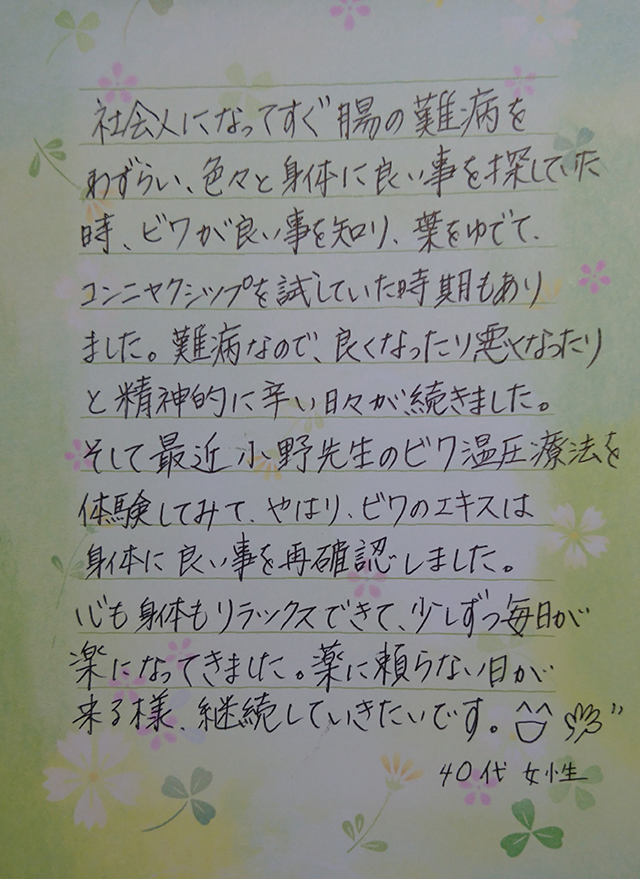 社会人になってすぐ腸の難病を
わずらい、色々と身体に良い事を探していた
時、ビワが良い事を知り、葉をゆでて、
コンニャクシップを試していた時期もあり
ました。難病なので、良くなったり悪くなったり
と精神的に辛い日々が、続きました。
そして最近小野先生のビワ温圧療法を
体験してみて、やはり、ビワのエキスは
身体に良い事を再確認しました。
心も身体もリラックスできて、少しずつ毎日が
楽になってきました。薬に頼らない日が
来る様、継続していきたいです。
40代 女性